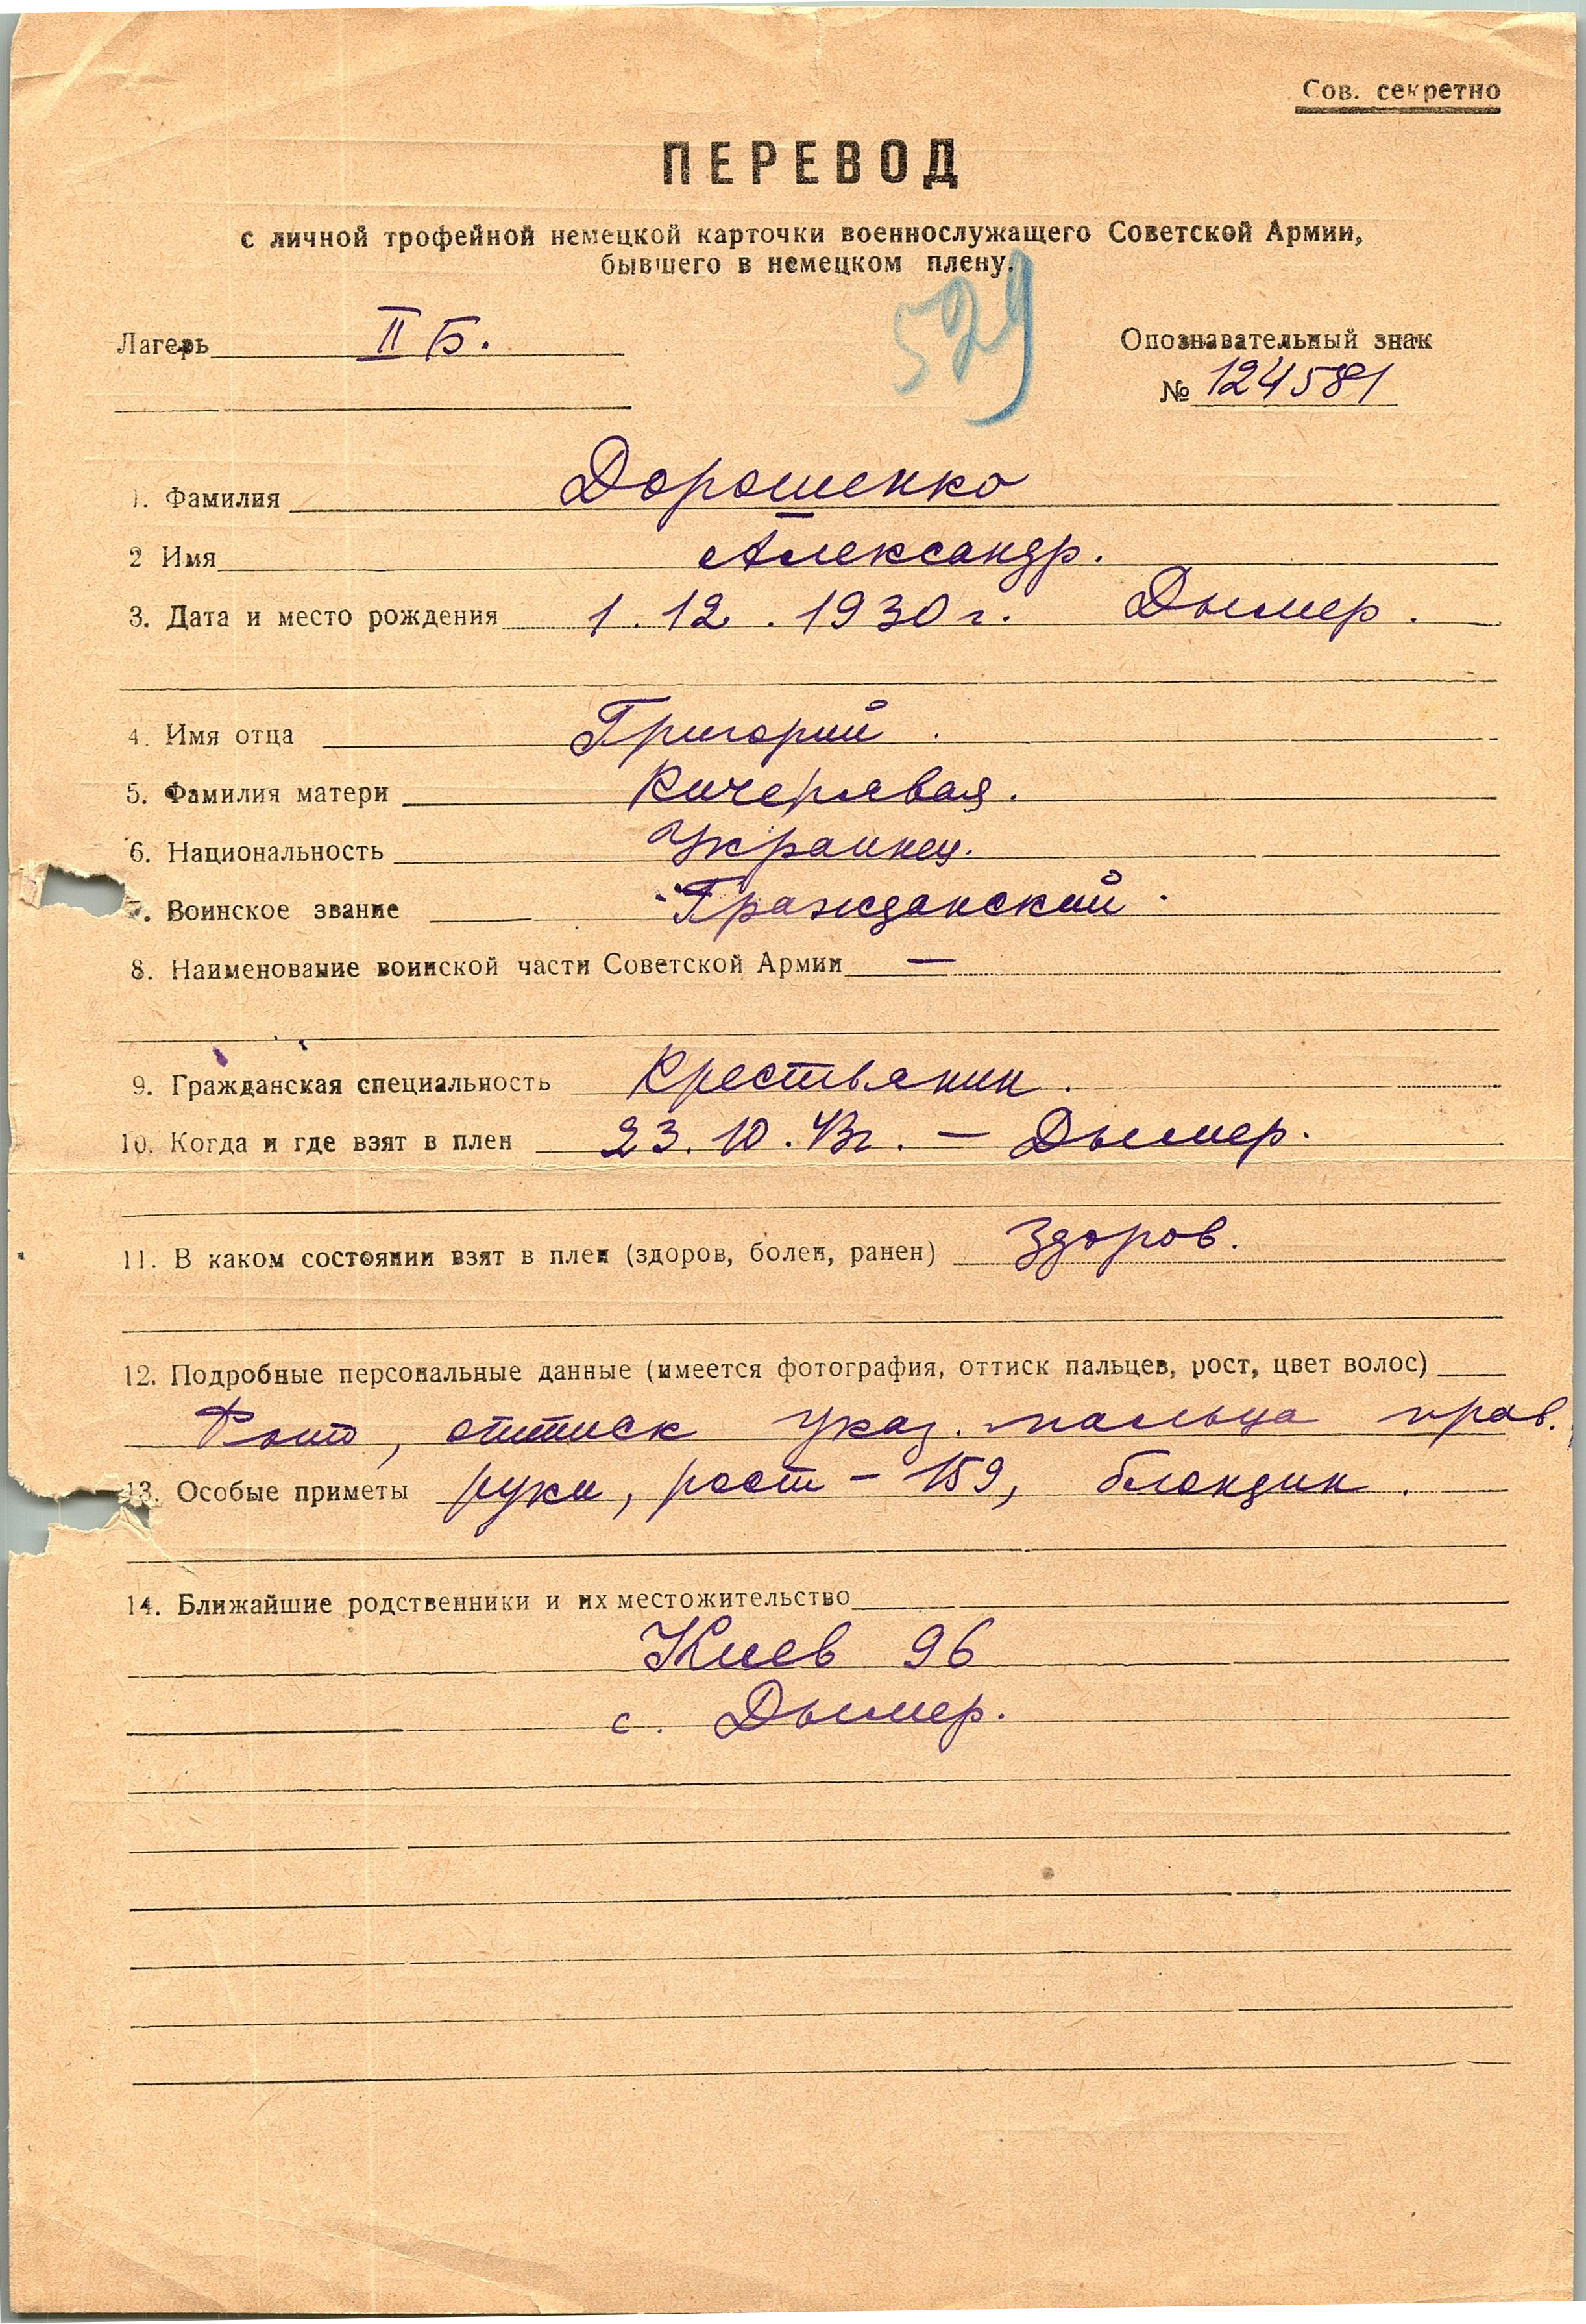 Сов. секретно
ПЕРЕВОД
с личной трофейной немецкой карточки военнослужащего Советской Армии,
бывшего в немецком плену.
529
Лагерь II Б.
Опознавательный знак
№ 124581
1. Фамилия Дорошенко
2 Имя Александр.
3. Дата и место рождения 1.12.1930 г. Дымер.
4. Имя отца Григорий.
5. Фамилия матери Кичерявая.
6. Национальность Украинец.
7. Воинское звание Гражданский.
8. Наименование воинской части Советской Армии —
9. Гражданская специальность Крестьянин.
10. Когда и где взят в плен 23.10.43г. — Дымер.
11. В каком состоянии взят в плен (здоров, болен, ранен) Здоров.
12. Подробные персональные данные (имеется фотография, оттиск пальцев, рост, цвет волос)
Фото, оттиск указ. пальца прав.
13. Особые приметы руки, рост – 159, блондин.
14. Ближайшие родственники и их местожительство
Киев 96
с. Дымер.